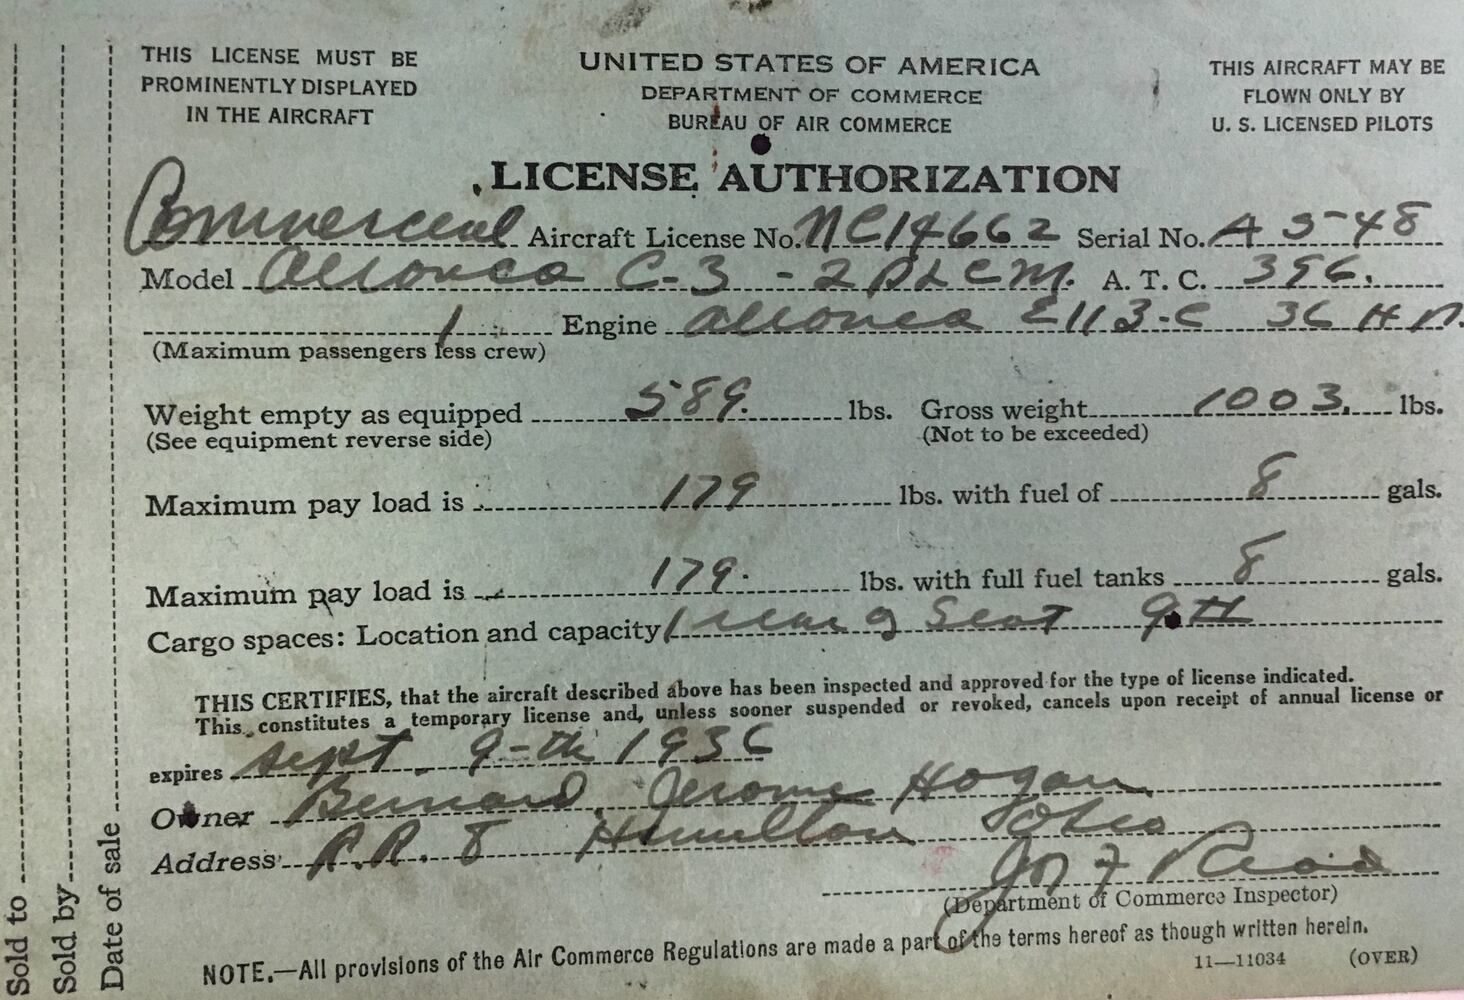 THIS LICENSE MUST BE
PROMINENTLY DISPLAYED
IN THE AIRCRAFT
UNITED STATES OF AMERICA
DEPARTMENT OF COMMERCE
BUREAU OF AIR COMMERCE
THIS AIRCRAFT MAY BE
FLOWN ONLY BY
U. S. LICENSED PILOTS
LICENSE AUTHORIZATION
Commercial Aircraft License No. NC14662 Serial No. A 5-48
Model Aeronca C-3 - 2 PLCM. A. T. C. 396.
1 Engine Aeronca E113-C 36 H P.
(Maximum passengers less crew)
Weight empty as equipped 589. lbs. Gross weight 1003. lbs.
(See equipment reverse side) (Not to be exceeded)
Maximum pay load is 179 lbs. with fuel of 8 gals.
Maximum pay load is 179. lbs. with full fuel tanks 8 gals.
Cargo spaces: Location and capacity 1 rear of Seat 9
THIS CERTIFIES, that the aircraft described above has been inspected and approved for the type of license indicated.
This constitutes a temporary license and, unless sooner suspended or revoked, cancels upon receipt of annual license or
expires Sept. 9-th 1936
Owner Bernard Jerome Hogan
Address R.R. 8 Hamilton Ohio
(Department of Commerce Inspector)
NOTE.—All provisions of the Air Commerce Regulations are made a part of the terms hereof as though written herein.
11—11034 (OVER)
Sold to
Sold by
Date of sale